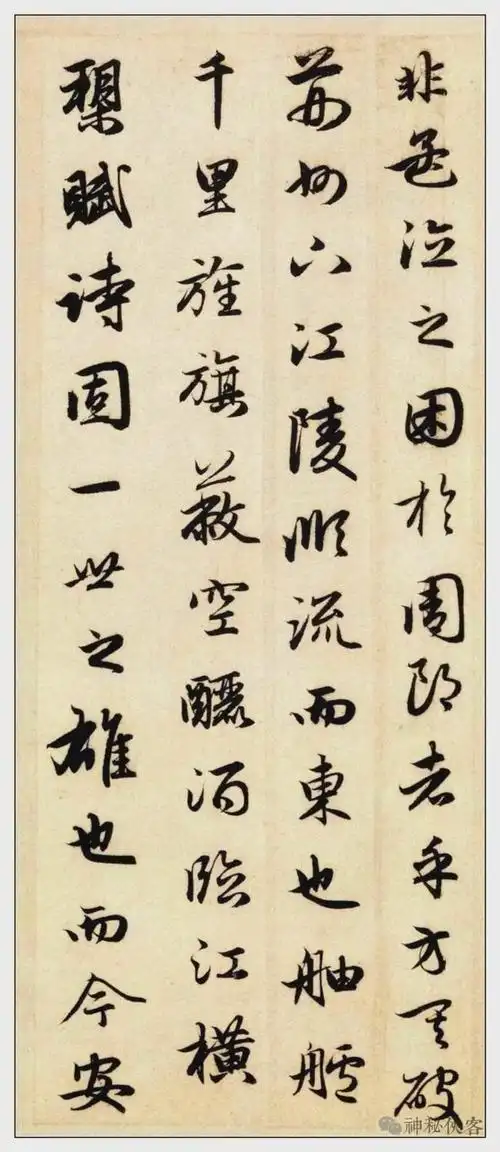 非孟德之困於周郎者乎方其破
荊州下江陵順流而東也舳艫
千里旌旗蔽空釃酒臨江橫
槊賦詩固一世之雄也而今安
神秘侠客